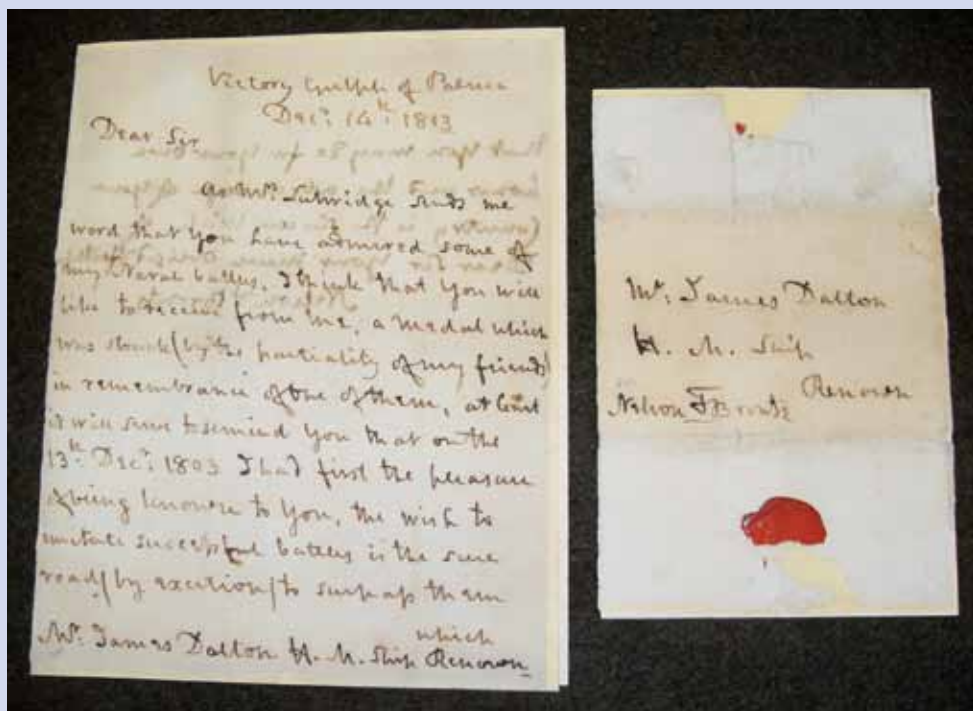 Victory Gulph of Palma
Decr. 14th: 1803
Dear Sir
as Mr. Lutwidge sends me
word that you have admired some of
my Naval battles, I think that you will
like to receive from me, a medal which
was struck (by the partiality of my friends)
in remembrance of one of them, at least
it will serve to remind you that on the
13th Decr: 1803 I had first the pleasure
of being known to you, the wish to
imitate successful battles is the sure
road (by exertion) to surpass them
which
Mr. James Dalton H. M. Ship Renown
Mr. James Dalton
H. M. Ship
Renown
Nelson & Bronte